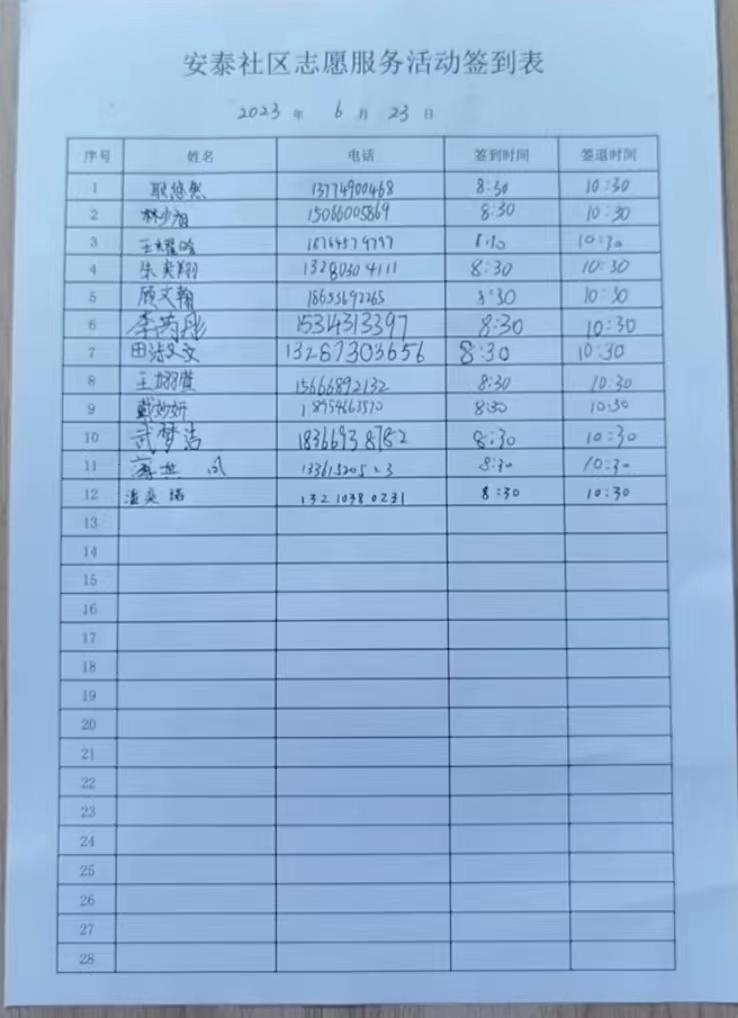 安泰社区志愿服务活动签到表
2023 年 6 月 23 日
序号 姓名 电话 签到时间 签退时间
1 耿悠然 13774900468 8:30 10:30
2 林少湘 15066005869 8:30 10:30
3 王耀晗 8:30 10:30
4 朱奕翔 13280304111 8:30 10:30
5 顾文翰 18653692265 8:30 10:30
6 李芮彤 15314313397 8:30 10:30
7 田淑文 13287303656 8:30 10:30
8 王翊萱 15666892132 8:30 10:30
9 戴妙妍 18954663570 8:30 10:30
10 武梦洁 18366938782 8:30 10:30
11 8:30 10:30
12 13210380231 8:30 10:30
13
14
15
16
17
18
19
20
21
22
23
24
25
26
27
28